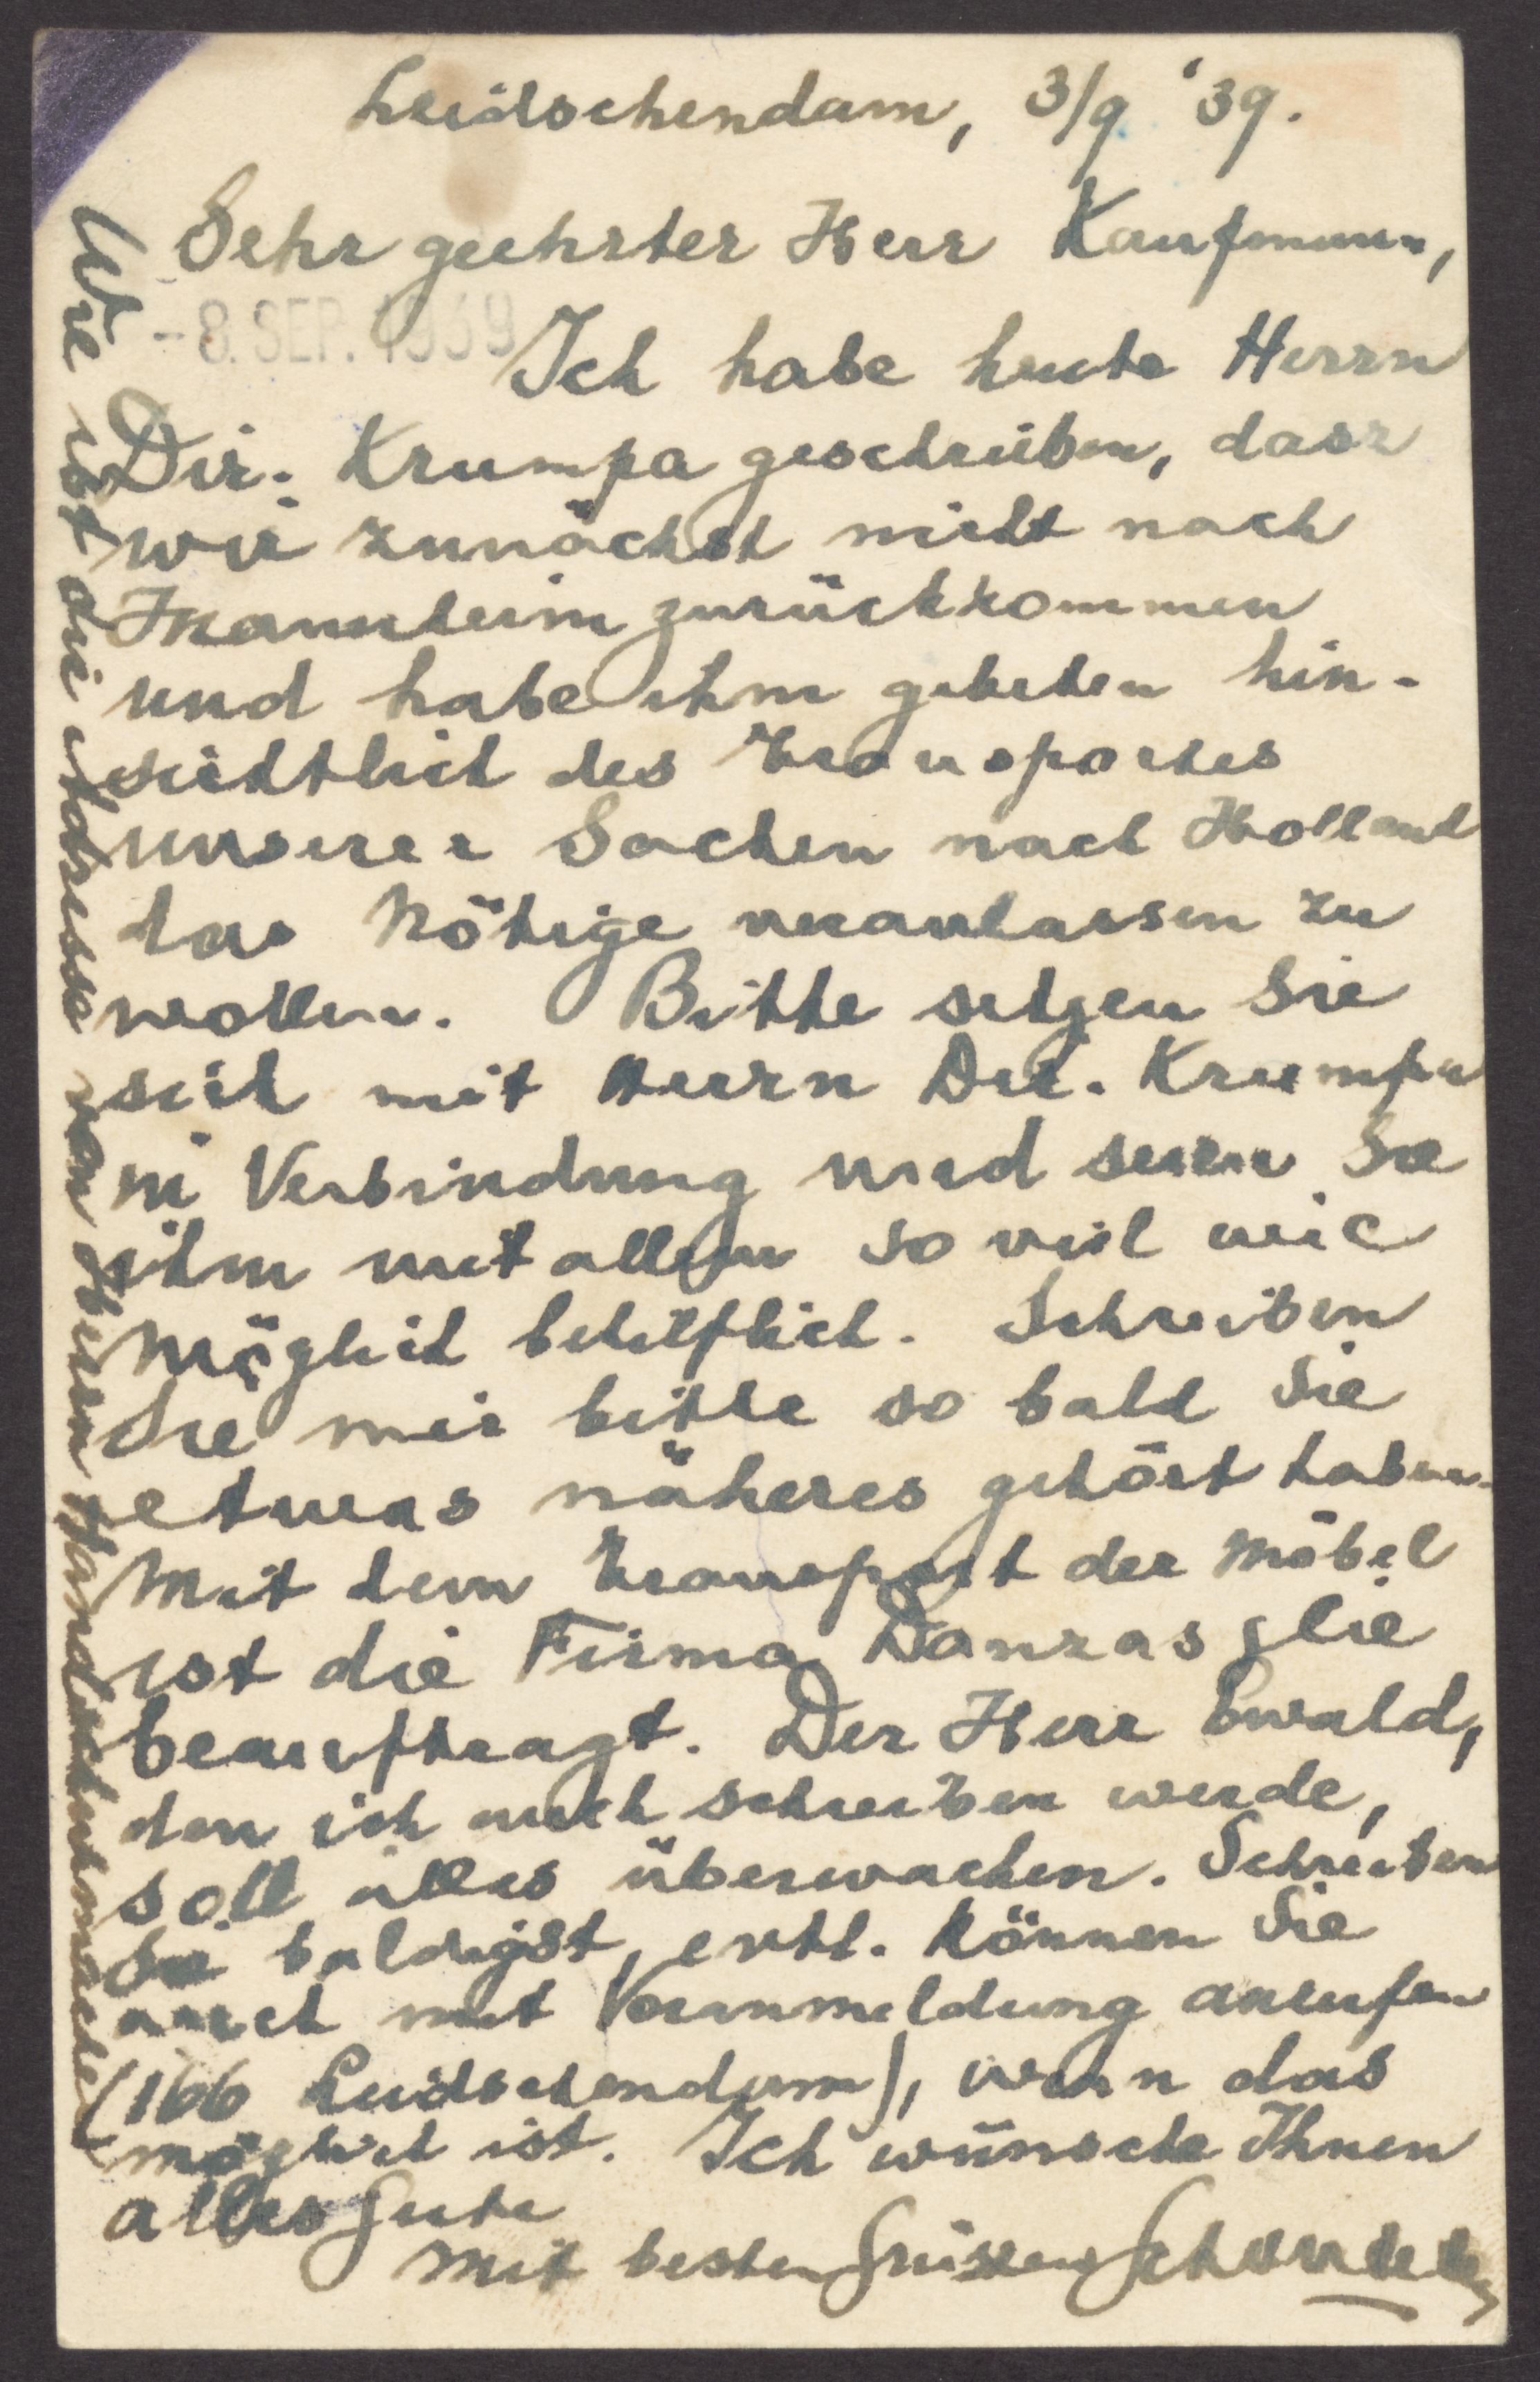 Leidschendam, 3/9 '39.
Sehr geehrter Herr Kaufmann,
- 8. SEP. 1939
Ich habe heute Herrn
Dir. Krumpa geschrieben, dasz
wir zunächst nicht nach
Mannheim zurückkommen
und habe ihm gebeten hin-
sichtlich des Transportes
unserer Sachen nach Holland
das Nötige veranlassen zu
wollen. Bitte setzen Sie
sich mit Herrn Dir. Krumpa
in Verbindung und seien Sie
ihm mit allem so viel wie
möglich behilflich. Schreiben
Sie mir bitte so bald Sie
etwas näheres gehört haben.
Mit dem Transport der Möbel
ist die Firma Danzas
beauftragt. Der Herr Ewald,
den ich auch schreiben werde,
soll alles überwachen. Schreiben
Sie baldigst, evtl. können Sie
auch mit Voranmeldung anrufen
(166 Leidschendam), wenn das
möglich ist. Ich wünsche Ihnen
alles Gute
Mit besten Grüssen
Wie ist die Adresse von obersn Handschuhmacher